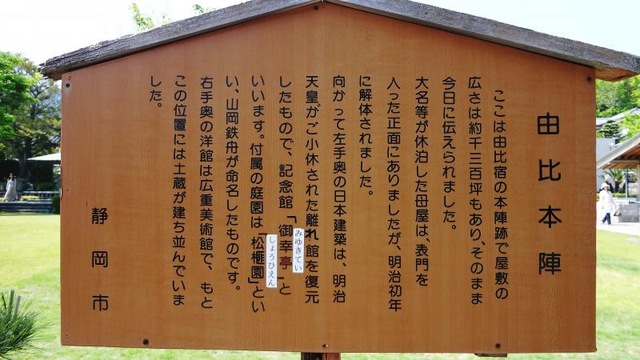 由比本陣
ここは由比宿の本陣跡で屋敷の
広さは約千三百坪もあり、そのまま
今日に伝えられました。
大名等が休泊した母屋は、表門を
入った正面にありましたが、明治初年
に解体されました。
向かって左手奥の日本建築は、明治
天皇がご小休された離れ館を復元
したもので、記念館「御幸亭」と
みゆきてい
いいます。付属の庭園は「松榧園」とい
しょうひえん
い、山岡鉄舟が命名したものです。
右手奥の洋館は広重美術館で、もと
この位置には土蔵が建ち並んでいま
した。
静岡市